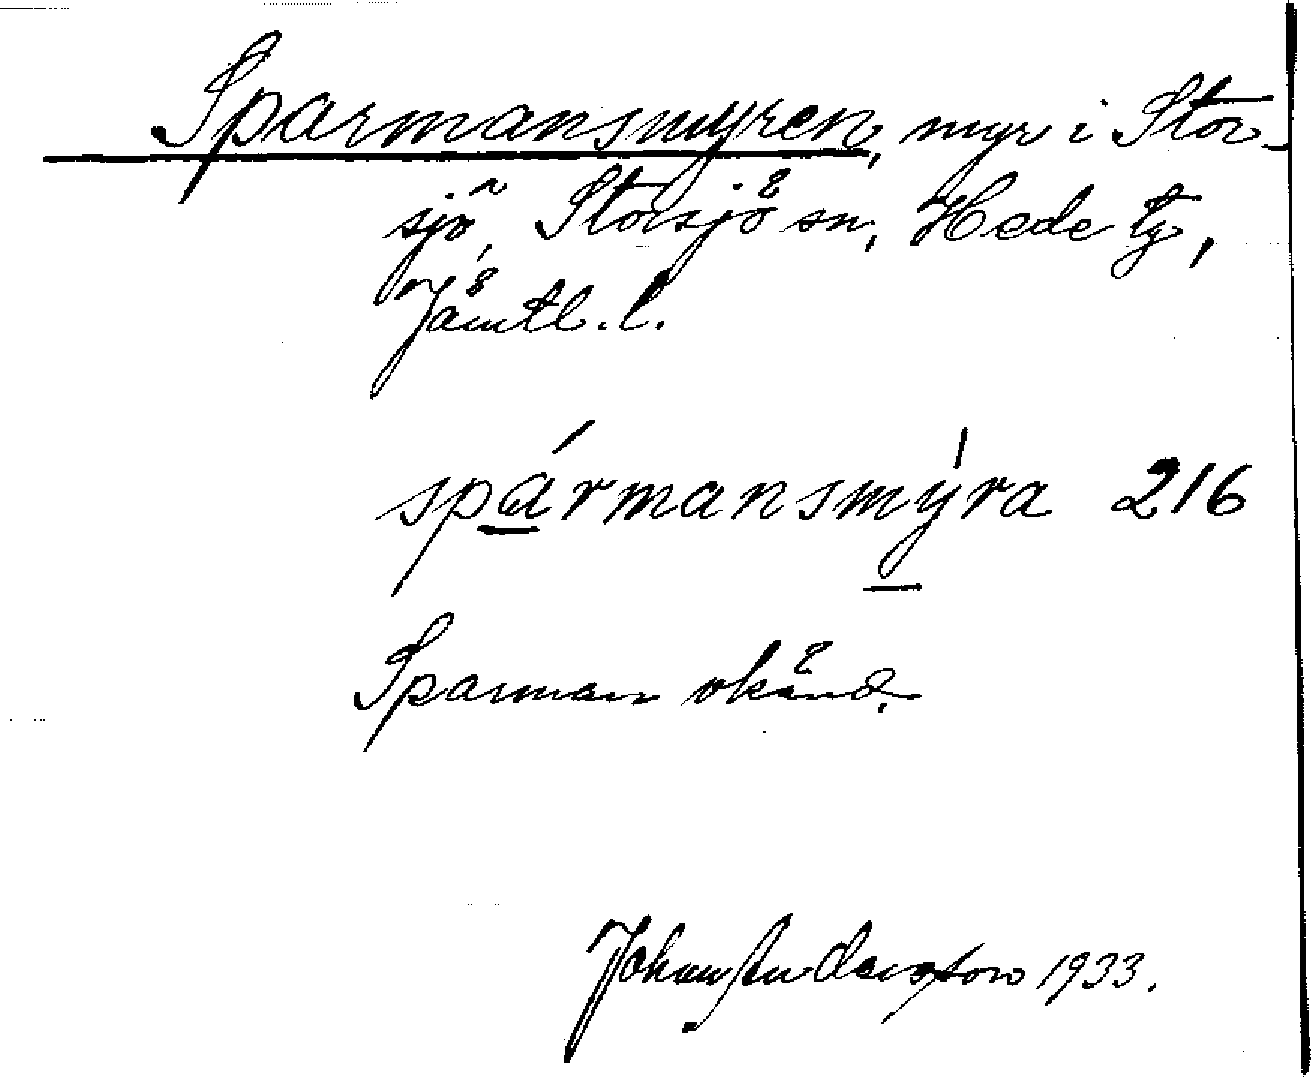 Sparmansmyren, myr i Stor-
sjö, Storsjö sn, Hede tg,
Jämtl. l.
spármansmýra 216
Sparman okänd.
Johan Anderson 1933.